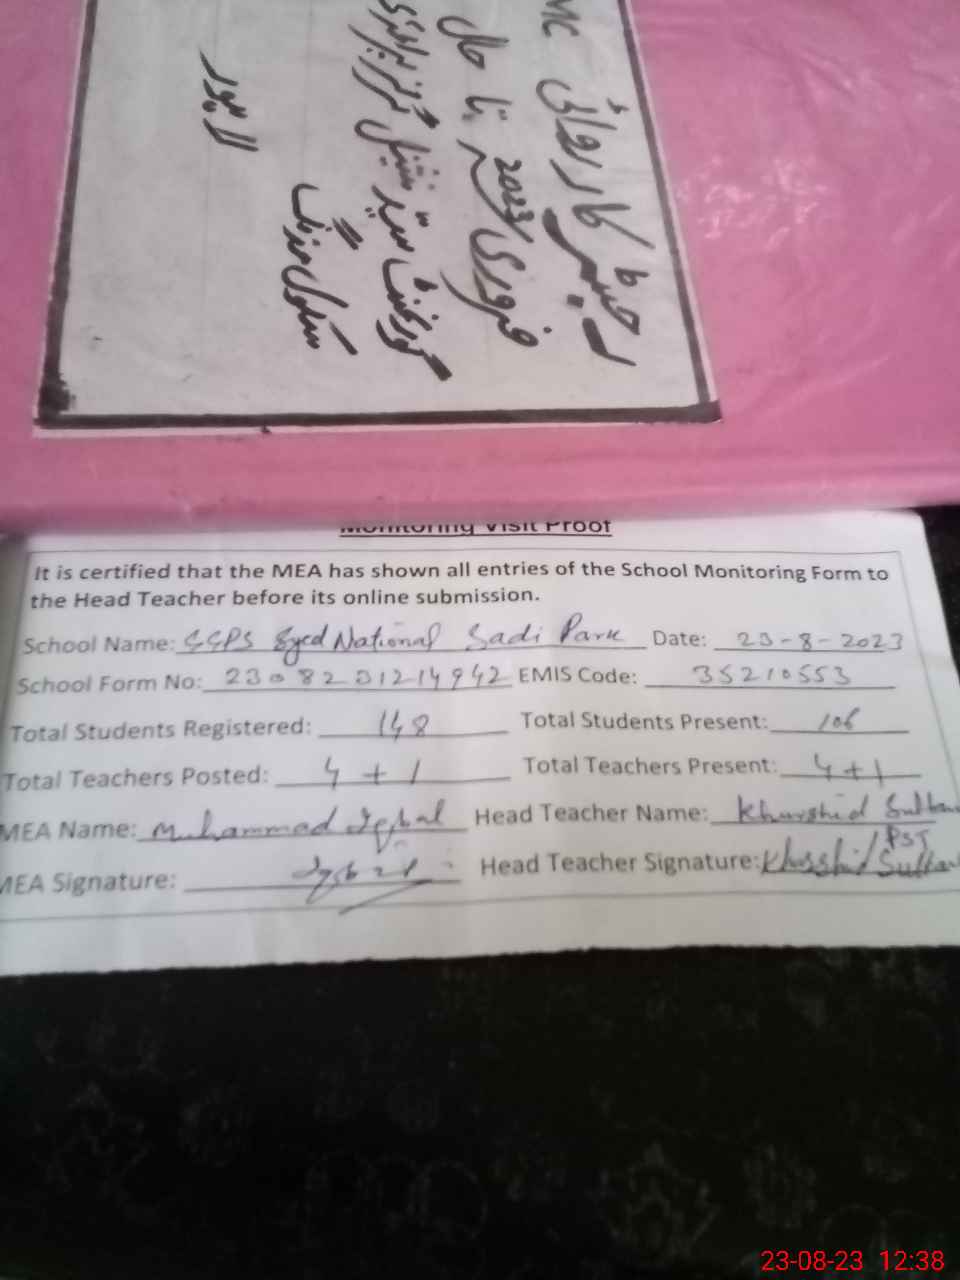 MC
رجسٹر کارروائی
فروری 2023 تا حال
گورنمنٹ سید نیشنل گرلز پرائمری
سکول مزنگ
لاہور
Monitoring Visit Proof
It is certified that the MEA has shown all entries of the School Monitoring Form to
the Head Teacher before its online submission.
School Name: GGPS Syed National Sadi Park Date: 23-8-2023
School Form No: 23082301214942 EMIS Code: 35210553
Total Students Registered: 148 Total Students Present: 106
Total Teachers Posted: 4+1 Total Teachers Present: 4+1
MEA Name: Muhammad Iqbal Head Teacher Name: Khurshid Sultan
PST
MEA Signature: Head Teacher Signature: Khurshid Sultan
23-08-23 12:38